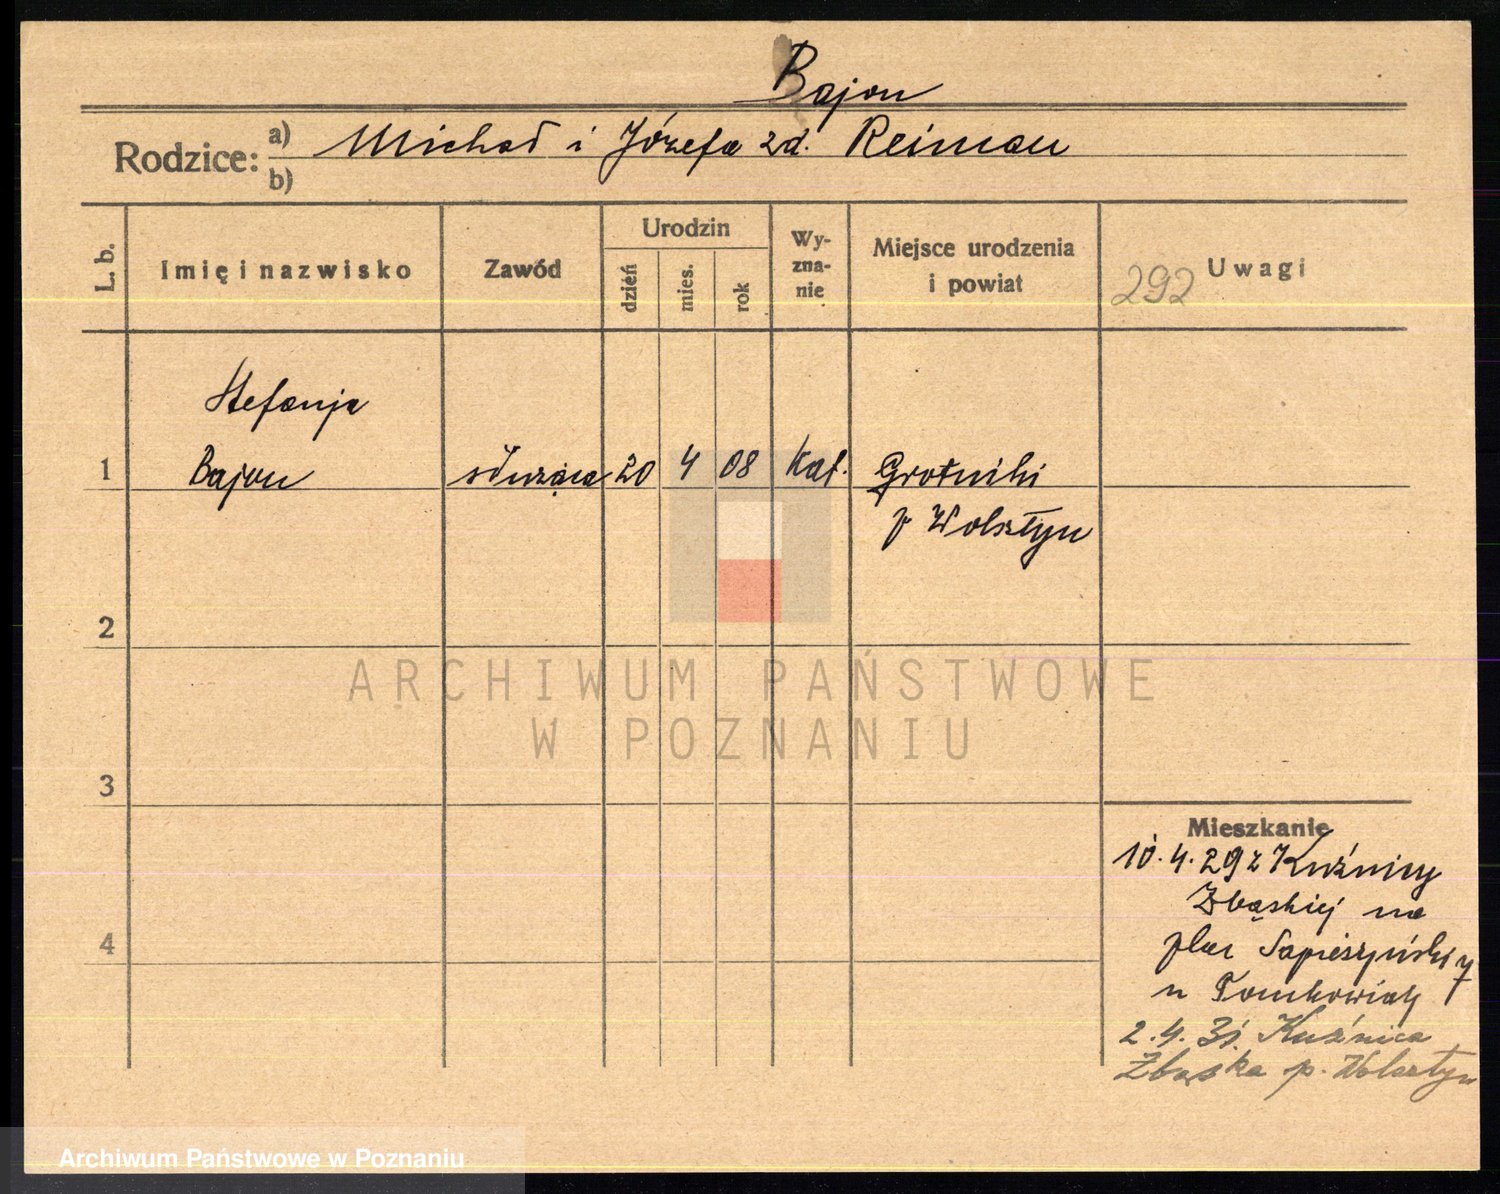 Bajon
Rodzice: a) Michał i Józefa zd. Reiman
b)
L. b. Imię i nazwisko Zawód Urodzin dzień mies. rok Wyzna-nie Miejsce urodzenia i powiat 292 Uwagi
Stefanja
1 Bajon służąca 20 4 08 Kat. Grotniki
p Wolsztyn
2
ARCHIWUM PAŃSTWOWE
W POZNANIU
3
Mieszkanie
10.4.29 z Kuźnicy
Zbąskiej na
plac Sapieżyński 7
4
u Tomkowiak
2.4.31. Kuźnica
Zbąska p. Wolsztyn
Archiwum Państwowe w Poznaniu